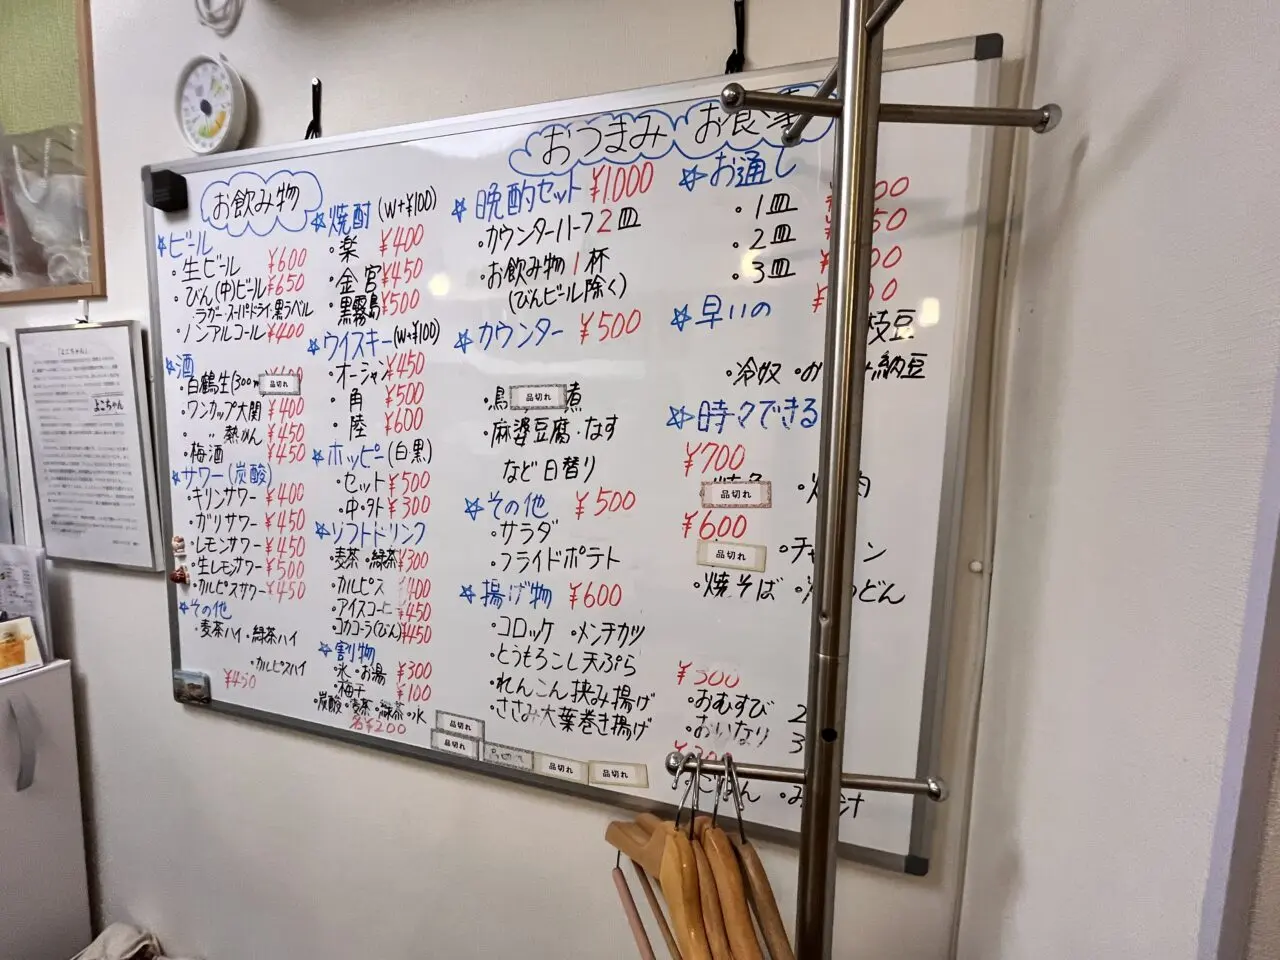 お飲み物
☆ビール
・生ビール ¥600
・びん(中)ビール ¥650
ラガー・スーパードライ・黒ラベル
・ノンアルコール ¥400
☆酒
・白鶴生(300m 品切れ
・ワンカップ大関 ¥400
・〃 熱かん ¥450
・梅酒 ¥450
☆サワー(炭酸)
・キリンサワー ¥400
・ガリサワー ¥450
・レモンサワー ¥450
・生レモンサワー ¥500
・カルピスサワー ¥450
☆その他
・麦茶ハイ・緑茶ハイ
・カルピスハイ
¥450
☆焼酎(W+¥100)
・楽 ¥400
・金宮 ¥450
・黒霧島 ¥500
☆ウイスキー(W+¥100)
・オーシャン ¥450
・角 ¥500
・陸 ¥600
☆ホッピー(白黒)
・セット ¥500
・中・外 ¥300
☆ソフトドリンク
・麦茶・緑茶 ¥300
・カルピス ¥400
・アイスコーヒー ¥450
・コカコーラ(びん) ¥450
☆割物
・氷・お湯 ¥300
・梅干 ¥100
・炭酸・麦茶・緑茶・水
各¥200
おつまみ お食事
☆晩酌セット ¥1000
・カウンターハーフ2皿
・お飲み物1杯
(びんビール除く)
☆カウンター ¥500
・鳥 品切れ 煮
・麻婆豆腐・なす
など日替り
☆その他 ¥500
・サラダ
・フライドポテト
☆揚げ物 ¥600
・コロッケ ・メンチカツ
・とうもろこし天ぷら
・れんこん挟み揚げ
・ささみ大葉巻き揚げ
品切れ
品切れ
品切れ
品切れ
品切れ
☆お通し
・1皿
・2皿
・3皿
☆早いの
枝豆
・冷奴 納豆
☆時々できる
¥700
品切れ
¥600
品切れ
・焼そば
¥300
・おむすび 2
・おいなり 3
よこちゃん